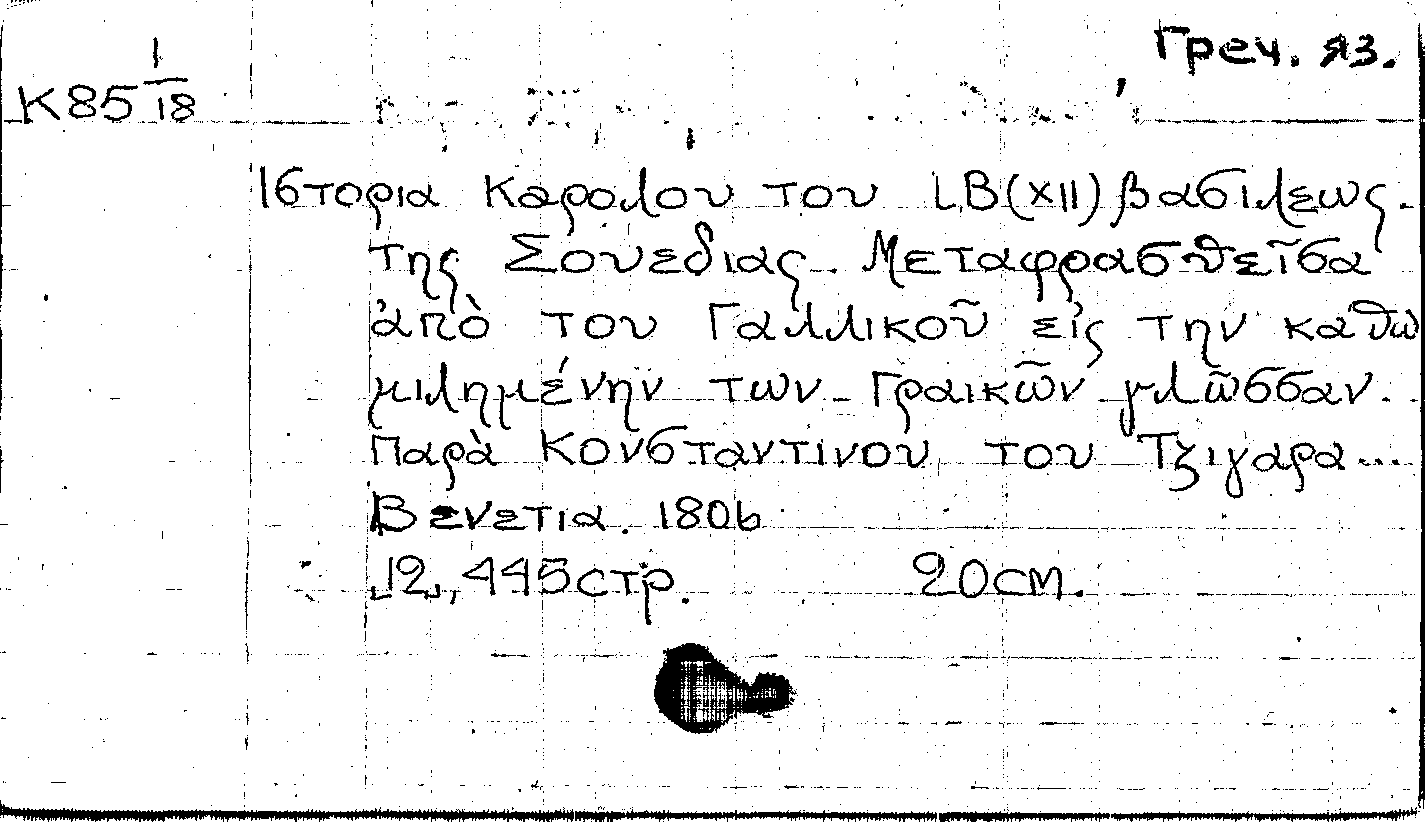 Греч. яз.
К85 1/18
Ιστορια Καρολου του ιΒ(XII) βασιλεως
της Σουεδιας. Μεταφρασθεῖσα
ἀπὸ του Γαλλικοῦ εἰς την καθω
μιλημένην των Γραικῶν γλῶσσαν.
Παρὰ Κονσταντινου του Τζιγαρα...
Βενετια. 1806
[2], 445стр. 20см.